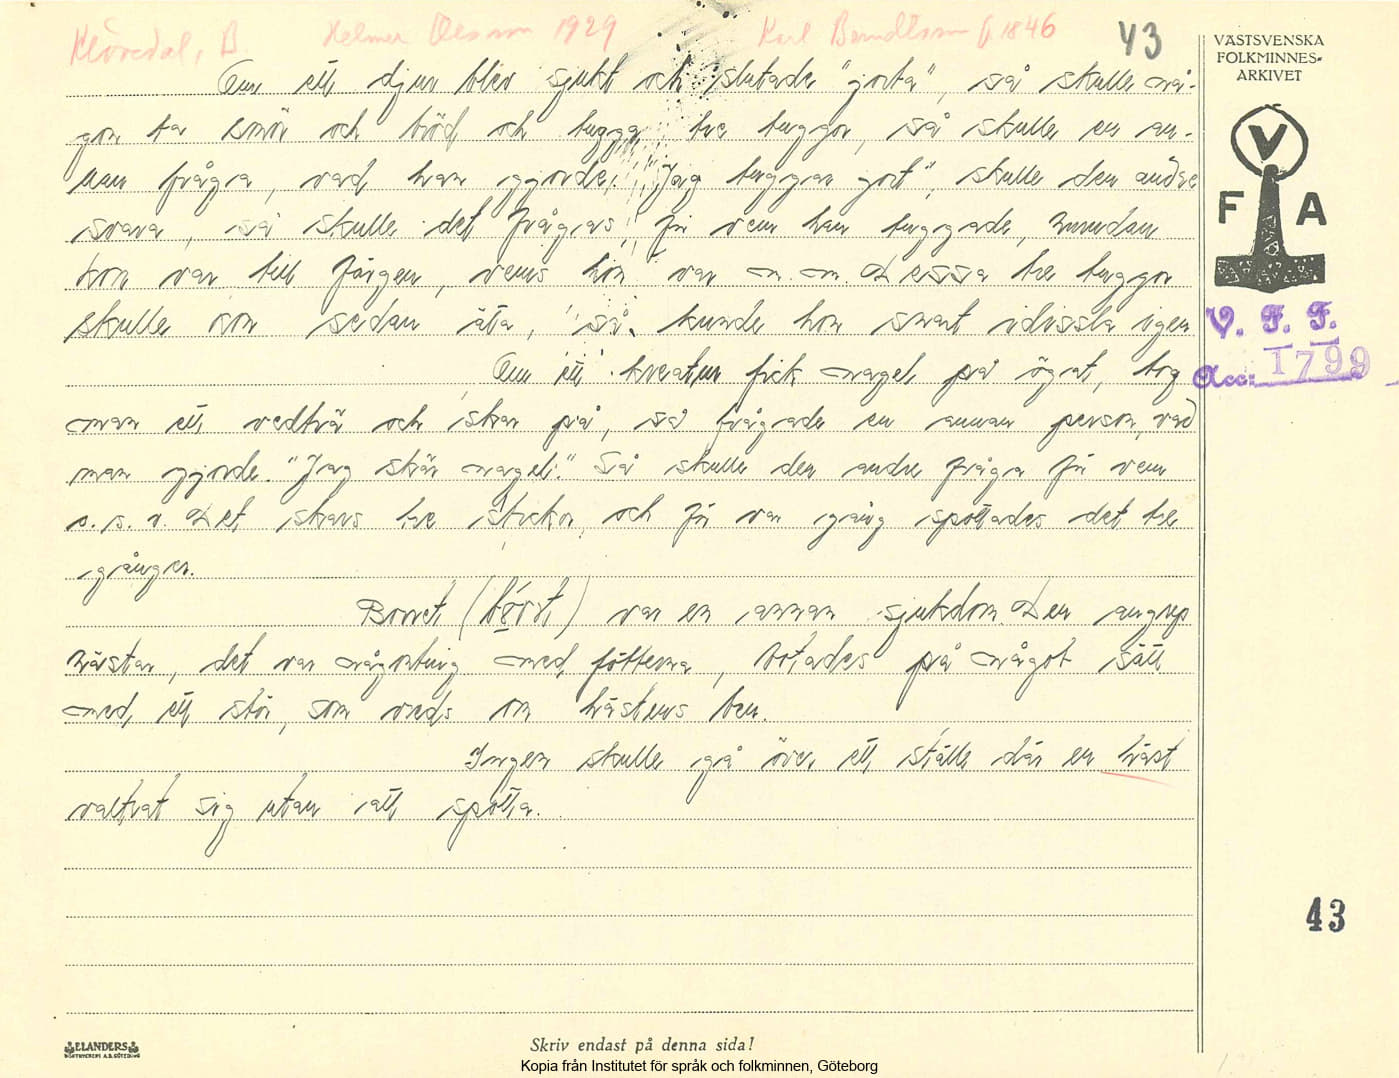 Klövedal, B. Helmer Olsson 1929 Karl Bendtsson f. 1846 43
VÄSTSVENSKA
FOLKMINNES-
ARKIVET
V
F A
V. F. F.
Acc: 1799
Om ett djur blev sjukt och slutade "jorta", så skulle nå-
gon ta smör och bröd och tugga tre tuggor, så skulle en an-
nan fråga, vad han gjorde. "Jag tuggar jort", skulle den andre
svara, så skulle det frågas, för vem han tuggade, hurudan
kon var till färgen, vems hon var m. m. Dessa tre tuggor
skulle kon sedan äta, så kunde hon snart idissla igen
Om ett kreatur fick nagel på ögat, tog
man ett vedträ och skar på, så frågade en annan person, vad
man gjorde. "Jag skär nagel." Så skulle den andre fråga för vem
o. s. v. Det skars tre stickor, och för var gång spottades det tre
gånger.
Borret ( ) var en annan sjukdom. Den angrep
hästar, det var någonting med fötterna, botades på något sätt
med ett stör, som vreds om hästens ben.
Ingen skulle gå över ett ställe där en häst
valtrat sig utan att spotta.
43
ELANDERS
BOKTRYCKERI A.B. GÖTEBORG
Skriv endast på denna sida!
Kopia från Institutet för språk och folkminnen, Göteborg